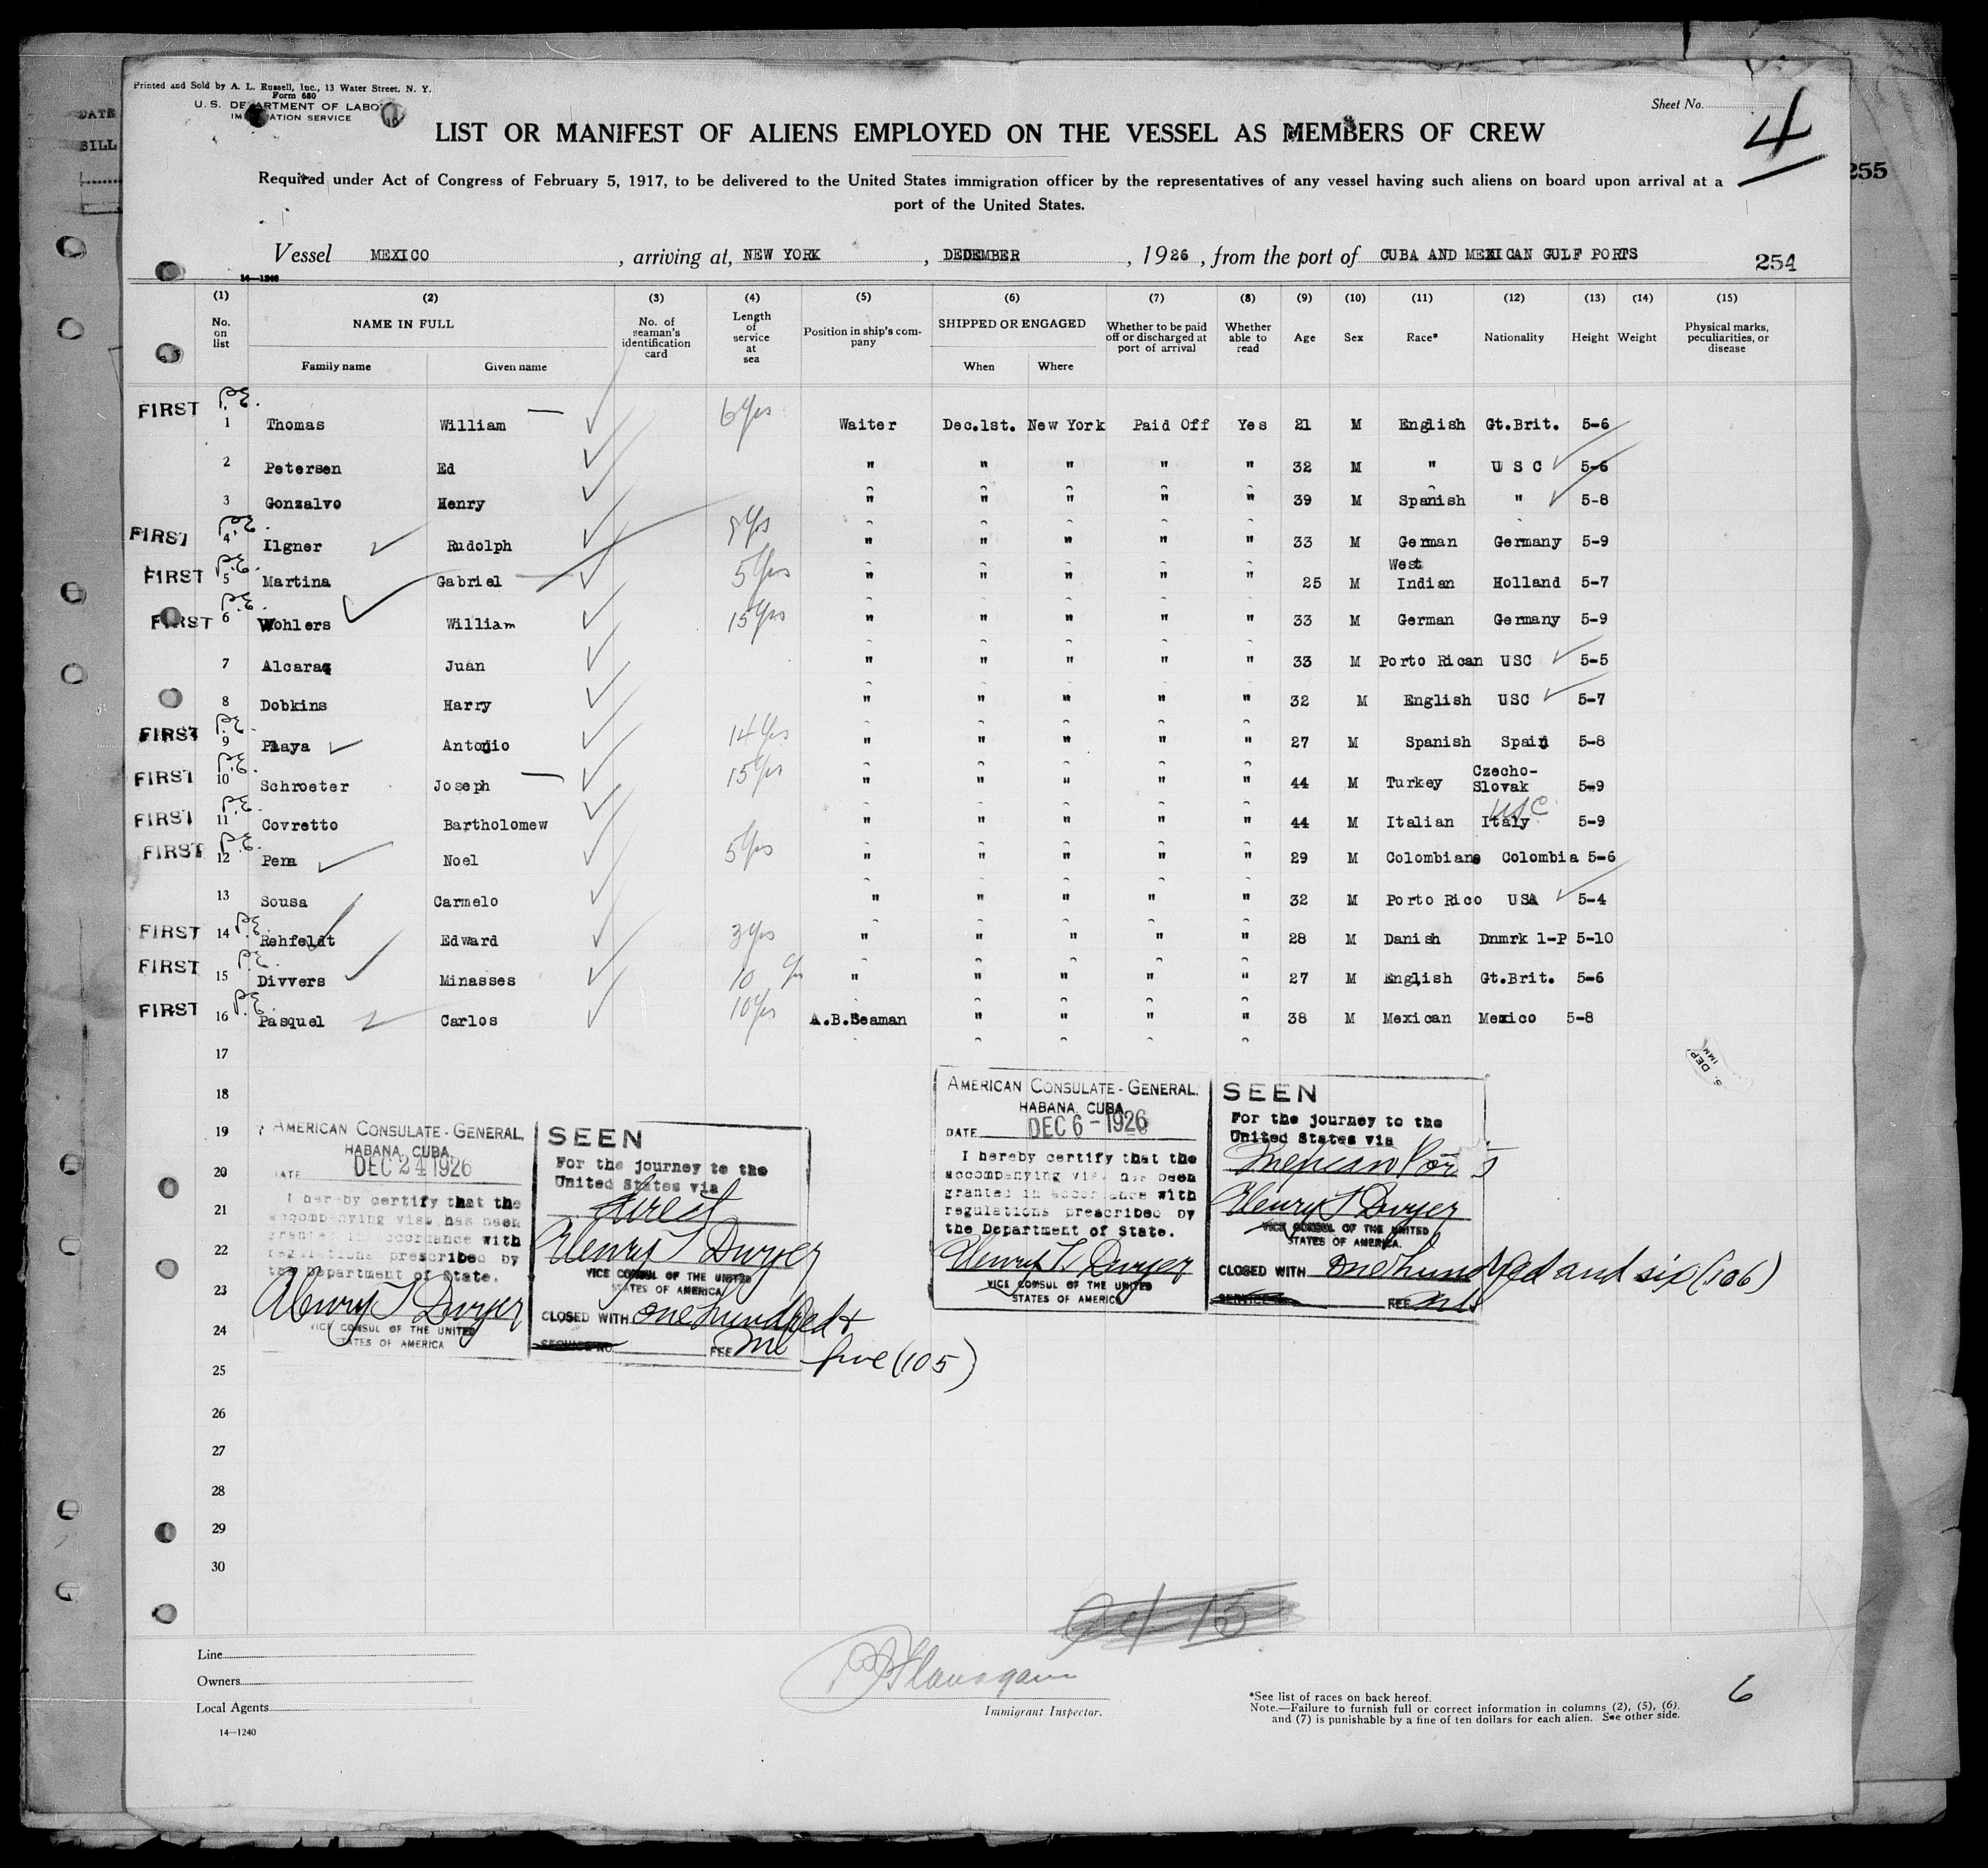 Printed and Sold by A. L. Russell, Inc., 13 Water Street, N. Y.
Form 680
U. S. DEPARTMENT OF LABOR
IMMIGRATION SERVICE
Sheet No. 4
DATE
BILL
LIST OR MANIFEST OF ALIENS EMPLOYED ON THE VESSEL AS MEMBERS OF CREW
255
Required under Act of Congress of February 5, 1917, to be delivered to the United States immigration officer by the representatives of any vessel having such aliens on board upon arrival at a
port of the United States.
Vessel MEXICO, arriving at, NEW YORK, DEDEMBER, 1926, from the port of CUBA AND MEXICAN GULF PORTS
254
14—1240
(1) (2) (3) (4) (5) (6) (7) (8) (9) (10) (11) (12) (13) (14) (15)
No. on list NAME IN FULL Family name Given name No. of seaman's identification card Length of service at sea Position in ship's company SHIPPED OR ENGAGED When Where Whether to be paid off or discharged at port of arrival Whether able to read Age Sex Race* Nationality Height Weight Physical marks, peculiarities, or disease
FIRST P.E. 1 Thomas William — 6 yrs Waiter Dec.1st. New York Paid Off Yes 21 M English Gt.Brit. 5-6
2 Petersen Ed " " " " " 32 M " U S C 5-6
3 Gonzalvo Henry " " " " " 39 M Spanish " 5-8
FIRST P.E. 4 Ilgner Rudolph yrs " " " " " 33 M German Germany 5-9
FIRST P.E. 5 Martina Gabriel — 5 yrs " " " " " 25 M West Indian Holland 5-7
FIRST P.E. 6 Wohlers William 15 yrs " " " " " 33 M German Germany 5-9
7 Alcaraz Juan " " " " " 33 M Porto Rican USC 5-5
8 Dobkins Harry " " " " " 32 M English USC 5-7
FIRST P.E. 9 Playa Antonio 14 yrs " " " " " 27 M Spanish Spain 5-8
FIRST P.E. 10 Schroeter Joseph — 15 yrs " " " " " 44 M Turkey Czecho-Slovak 5-9
FIRST P.E. 11 Covretto Bartholomew " " " " " 44 M Italian Italy USC 5-9
FIRST P.E. 12 Pena Noel 5 yrs " " " " " 29 M Colombiane Colombia 5-6
13 Sousa Carmelo " " " " " 32 M Porto Rico USA 5-4
FIRST P.E. 14 Rehfeldt Edward 3 yrs " " " " " 28 M Danish Dnmrk 1-P 5-10
FIRST P.E. 15 Divvers Minasses 10 yrs " " " " " 27 M English Gt.Brit. 5-6
FIRST P.E. 16 Pasquel Carlos 10 yrs A.B.Seaman " " " " 38 M Mexican Mexico 5-8
17
18
19
20
21
22
23
24
25
26
27
28
29
30
AMERICAN CONSULATE-GENERAL.
HABANA, CUBA.
DATE DEC 6 - 1926
I hereby certify that the
accompanying visa has been
granted in accordance with
regulations prescribed by
the Department of State.
Henry T Dwyer
VICE CONSUL OF THE UNITED
STATES OF AMERICA
SEEN
For the journey to the
United States via
Mexican Ports
Henry T Dwyer
VICE CONSUL OF THE UNITED
STATES OF AMERICA.
CLOSED WITH one hundred and six (106)
SERVICE NO. FEE
AMERICAN CONSULATE-GENERAL.
HABANA, CUBA.
DATE DEC 24 1926
I hereby certify that the
accompanying visa has been
granted in accordance with
regulations prescribed by
the Department of State.
Henry T Dwyer
VICE CONSUL OF THE UNITED
STATES OF AMERICA
SEEN
For the journey to the
United States via
direct
Henry T Dwyer
VICE CONSUL OF THE UNITED
STATES OF AMERICA
CLOSED WITH one hundred &
five (105)
SERVICE NO. FEE
S. DEP.
IMM
15
Line
Owners
Local Agents
14—1240
Flanagan
Immigrant Inspector.
*See list of races on back hereof.
Note.—Failure to furnish full or correct information in columns (2), (5), (6),
and (7) is punishable by a fine of ten dollars for each alien. See other side.
6